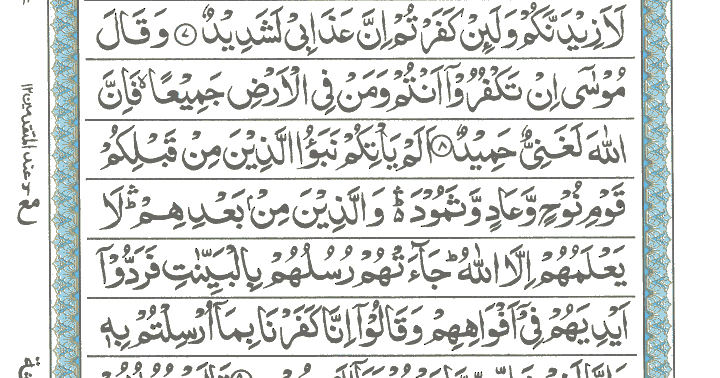 لَاَزِيْدَنَّكُمْ وَلَئِنْ كَفَرْتُمْ اِنَّ عَذَابِيْ لَشَدِيْدٌ ﴿۷﴾ وَقَالَ
مُوْسٰۤى اِنْ تَكْفُرُوْۤا اَنْتُمْ وَمَنْ فِي الْاَرْضِ جَمِيْعًا ۙ فَاِنَّ
اللّٰهَ لَغَنِيٌّ حَمِيْدٌ ﴿۸﴾ اَلَمْ يَاْتِكُمْ نَبَؤُا الَّذِيْنَ مِنْ قَبْلِكُمْ
قَوْمِ نُوْحٍ وَّعَادٍ وَّثَمُوْدَ ۛؕ وَالَّذِيْنَ مِنْۢ بَعْدِهِمْ ۛؕ لَا
يَعْلَمُهُمْ اِلَّا اللّٰهُ ؕ جَآءَتْهُمْ رُسُلُهُمْ بِالْبَيِّنٰتِ فَرَدُّوْۤا
اَيْدِيَهُمْ فِيْۤ اَفْوَاهِهِمْ وَقَالُوْۤا اِنَّا كَفَرْنَا بِمَاۤ اُرْسِلْتُمْ بِهٖ
مع عند المتقدمين ۱۲